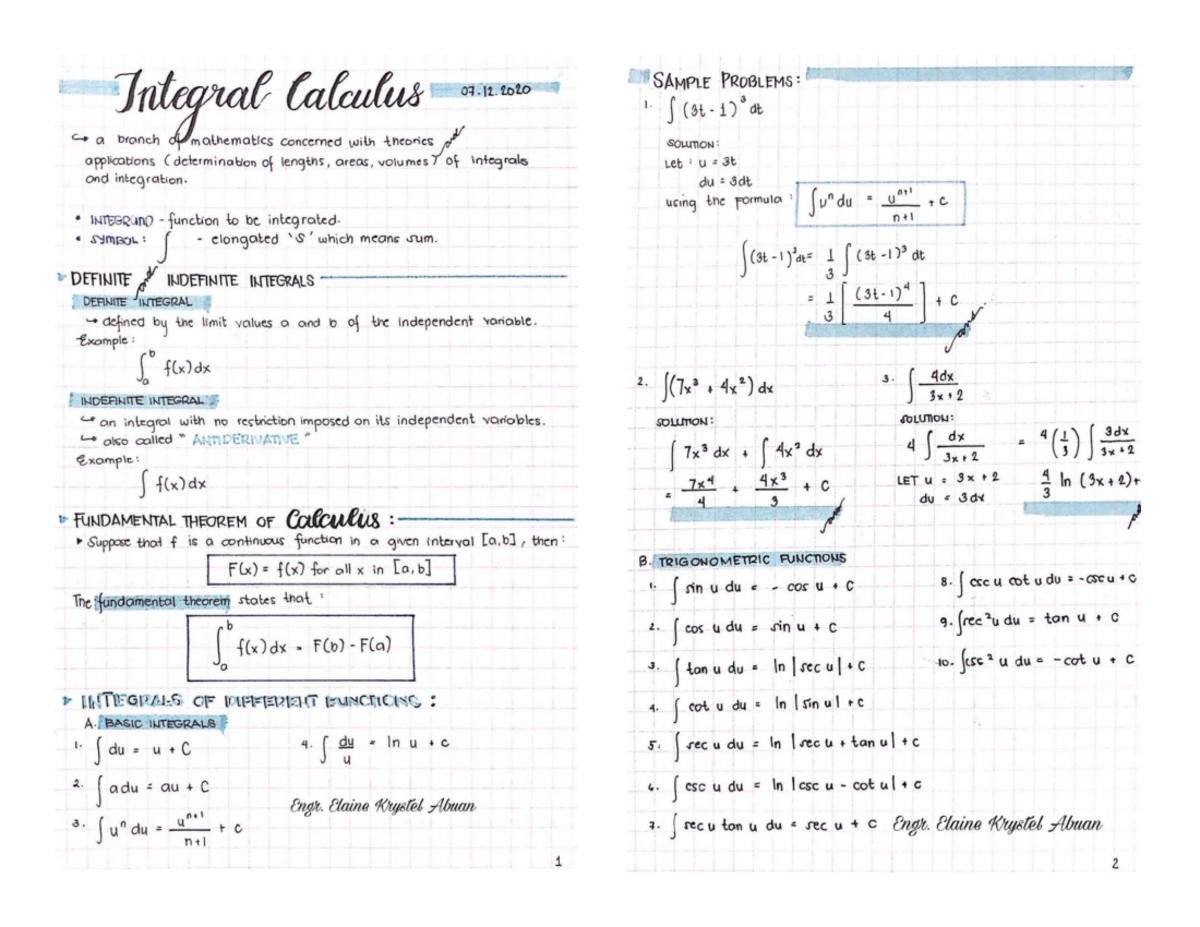 Integral Calculus 07.12.2020
↪ a branch of mathematics concerned with theories and
applications (determination of lengths, areas, volumes) of integrals
and integration.
• INTEGRAND - function to be integrated.
• SYMBOL: ∫ - elongated 'S' which means sum.
DEFINITE and INDEFINITE INTEGRALS
DEFINITE INTEGRAL
↪ defined by the limit values a and b of the independent variable.
Example:
∫_a^b f(x)dx
INDEFINITE INTEGRAL
↪ an integral with no restriction imposed on its independent variables.
↪ also called "ANTIDERIVATIVE"
Example:
∫ f(x)dx
FUNDAMENTAL THEOREM OF Calculus:
▸ Suppose that f is a continuous function in a given interval [a,b], then:
F(x) = f(x) for all x in [a,b]
The fundamental theorem states that:
∫_a^b f(x)dx = F(b) - F(a)
INTEGRALS OF DIFFERENT FUNCTIONS:
A. BASIC INTEGRALS
1. ∫ du = u + C
2. ∫ a du = au + C
3. ∫ u^n du = u^(n+1)/(n+1) + C
4. ∫ du/u = ln u + c
Engr. Elaine Krystel Abuan
1
SAMPLE PROBLEMS:
1. ∫ (3t - 1)^3 dt
SOLUTION:
Let: u = 3t
du = 3dt
using the formula: ∫ u^n du = u^(n+1)/(n+1) + C
∫(3t - 1)^3 dt = 1/3 ∫ (3t - 1)^3 dt
= 1/3 [ (3t-1)^4 / 4 ] + C
ans.
2. ∫(7x^3 + 4x^2) dx
SOLUTION:
∫ 7x^3 dx + ∫ 4x^2 dx
= 7x^4/4 + 4x^3/3 + C
3. ∫ 4dx/(3x + 2)
SOLUTION:
4 ∫ dx/(3x + 2) = 4(1/3) ∫ 3dx/(3x + 2)
LET u = 3x + 2
du = 3dx
4/3 ln (3x + 2) +
B. TRIGONOMETRIC FUNCTIONS
1. ∫ sin u du = - cos u + C
2. ∫ cos u du = sin u + C
3. ∫ tan u du = ln |sec u| + C
4. ∫ cot u du = ln |sin u| + c
5. ∫ sec u du = ln |sec u + tan u| + c
6. ∫ csc u du = ln |csc u - cot u| + c
7. ∫ sec u tan u du = sec u + C
8. ∫ csc u cot u du = -csc u + c
9. ∫ sec^2 u du = tan u + C
10. ∫ csc^2 u du = -cot u + C
Engr. Elaine Krystel Abuan
2